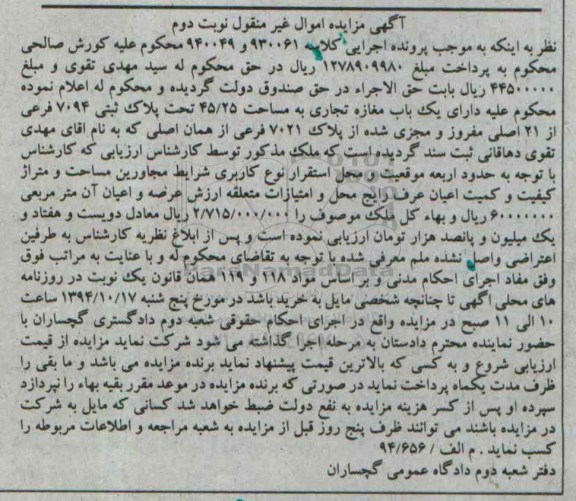 آگهی مزایده اموال غیر منقول نوبت دوم
نظر به اینکه به موجب پرونده اجرایی کلاسه ۹۳۰۰۶۱ و ۹۴۰۰۴۹ محکوم علیه کورش صالحی
محکوم به پرداخت مبلغ ۱۲۷۸۹۰۹۹۸۰ ریال در حق محکوم له سید مهدی تقوی و مبلغ
۴۴۵۰۰۰۰۰ ریال بابت حق الاجراء در حق صندوق دولت گردیده و محکوم له اعلام نموده
محکوم علیه دارای یک باب مغازه تجاری به مساحت ۴۵/۲۵ تحت پلاک ثبتی ۷۰۹۴ فرعی
از ۲۱ اصلی مفروز و مجزی شده از پلاک ۷۰۲۱ فرعی از همان اصلی که به نام اقای مهدی
تقوی دهاقانی ثبت سند گردیده است که ملک مذکور توسط کارشناس ارزیابی که کارشناس
با توجه به حدود اربعه موقعیت و محل استقرار نوع کاربری شرایط مجاورین مساحت و متراژ
کیفیت و کمیت اعیان عرف رایج محل و امتیازات متعلقه ارزش عرضه و اعیان آن متر مربعی
۶۰۰۰۰۰۰۰ ریال و بهاء کل ملک موصوف را ۲/۷۱۵/۰۰۰/۰۰۰ ریال معادل دویست و هفتاد و
یک میلیون و پانصد هزار تومان ارزیابی نموده است و پس از ابلاغ نظریه کارشناس به طرفین
اعتراضی واصل نشده ملم معرفی شده با توجه به تقاضای محکوم له و با عنایت به مراتب فوق
وفق مفاد اجرای احکام مدنی و بر اساس مواد ۱۱۸ و ۱۱۹ همان قانون یک نوبت در روزنامه
های محلی اگهی تا چنانچه شخصی مایل به خرید باشد در مورخ پنج شنبه ۱۳۹۴/۱۰/۱۷ ساعت
۱۰ الی ۱۱ صبح در مزایده واقع در اجرای احکام حقوقی شعبه دوم دادگستری گچساران با
حضور نماینده محترم دادستان به مرحله اجرا گذاشته می شود شرکت نماید مزایده از قیمت
ارزیابی شروع و به کسی که بالاترین قیمت پیشنهاد نماید برنده مزایده می باشد و ما بقی را
ظرف مدت یکماه پرداخت نماید در صورتی که برنده مزایده در موعد مقرر بقیه بهاء را نپردازد
سپرده او پس از کسر هزینه مزایده به نفع دولت ضبط خواهد شد کسانی که مایل به شرکت
در مزایده باشند می توانند ظرف پنج روز قبل از مزایده به شعبه مراجعه و اطلاعات مربوطه را
کسب نماید . م الف / ۹۴/۶۵۶
دفتر شعبه دوم دادگاه عمومی گچساران